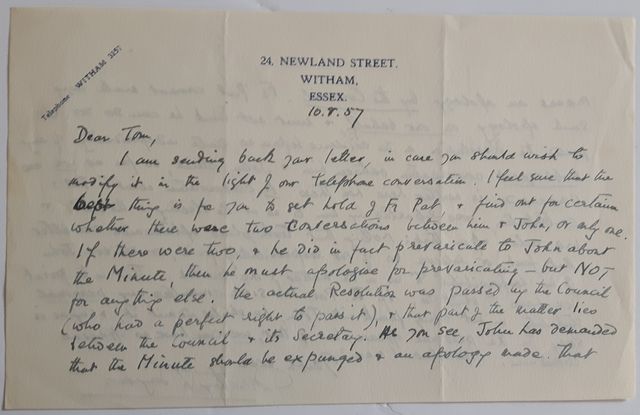 Telephone WITHAM 3157
24, NEWLAND STREET,
WITHAM,
ESSEX.
10.8.57
Dear Tom,
I am sending back your letter, in case you should wish to
modify it in the light of our telephone conversation. I feel sure that the
best thing is for you to get hold of Fr Pat, & find out for certain
whether there were two conversations between him & John, or only one.
If there were two, & he did in fact prevaricate to John about
the Minute, then he must apologise for prevaricating – but NOT
for anything else. The actual Resolution was passed by the Council
(who had a perfect right to pass it), & that part of the matter lies
between the Council & its Secretary. As you see, John has demanded
that the Minute should be expunged & an apology made. That